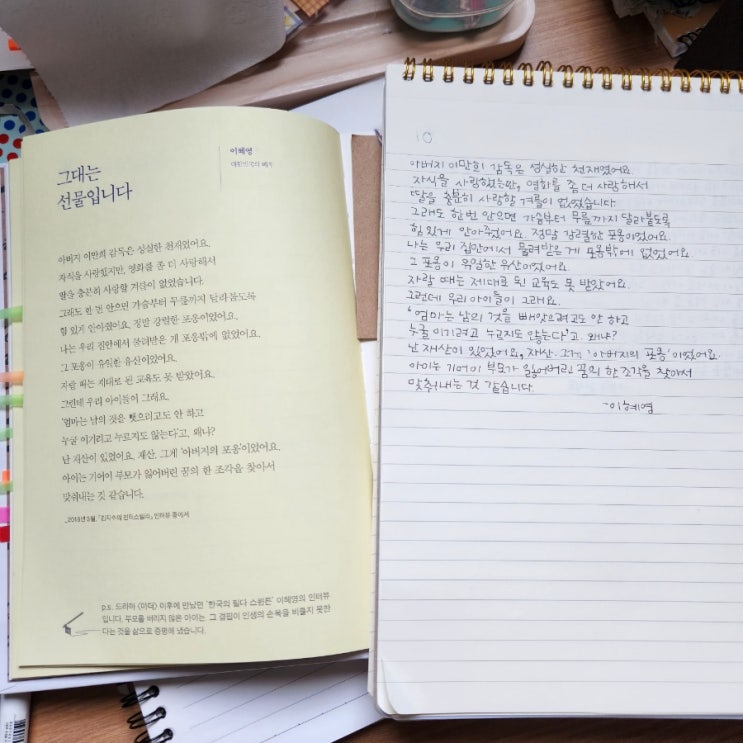 그대는
선물입니다
이혜영
대한민국의 배우
아버지 이만희 감독은 성실한 천재였어요.
자식을 사랑했지만, 영화를 좀 더 사랑해서
딸을 충분히 사랑할 겨를이 없었습니다.
그래도 한 번 안으면 가슴부터 무릎까지 달라붙도록
힘 있게 안아줬어요. 정말 강렬한 포옹이었어요.
나는 우리 집안에서 물려받은 게 포옹밖에 없었어요.
그 포옹이 유일한 유산이었어요.
자랄 때는 제대로 된 교육도 못 받았어요.
그런데 우리 아이들이 그래요.
'엄마는 남의 것을 뺏으려고도 안 하고
누굴 이기려고 누르지도 않는다'고. 왜냐?
난 재산이 있었어요. 재산. 그게 '아버지의 포옹'이었어요.
아이는 기어이 부모가 잃어버린 꿈의 한 조각을 찾아서
맞춰내는 것 같습니다.
_2018년 5월, 『김지수의 인터스텔라』 인터뷰 중에서
p.s. 드라마 <마더> 이후에 만났던 '한국의 틸다 스윈튼' 이혜영의 인터뷰
입니다. 부모를 버리지 않은 아이는, 그 결핍이 인생의 손목을 비틀지 못한
다는 것을 삶으로 증명해 냈습니다.
10
아버지 이만희 감독은 성실한 천재였어요.
자식을 사랑했는데, 영화를 좀 더 사랑해서
딸을 충분히 사랑할 겨를이 없었습니다
그래도 한번 안으면 가슴부터 무릎까지 달라붙도록
힘있게 안아줬어요. 정말 강렬한 포옹이었어요.
나는 우리 집안에서 물려받은 게 포옹밖에 없었어요
그 포옹이 유일한 유산이었어요.
자랄 때는 제대로 된 교육도 못 받았어요.
그런데 우리 아이들이 그래요.
'엄마는 남의 것을 빼앗으려고도 안 하고
누굴 이기려고 누르지도 않는다'고. 왜냐?
난 재산이 있었어요, 재산. 그게 '아버지의 포옹'이었어요.
아이는 기어이 부모가 잃어버린 꿈의 한 조각을 찾아서
맞춰내는 것 같습니다.
-이혜영